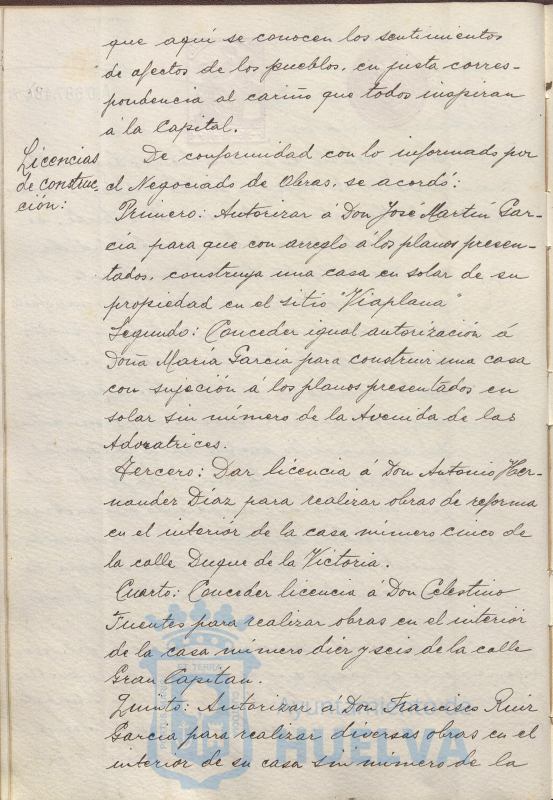 que aquí se conocen los sentimientos
de afectos de los pueblos, en justa corres-
pondencia al cariño que todos inspiran
á la Capital.
Licencias
de construc
ción:
De conformidad con lo informado por
el Negociado de Obras, se acordó:
Primero: Autorizar á Don José Martín Gar-
cía para que con arreglo á los planos presen-
tados, construya una casa en solar de su
propiedad en el sitio "Viaplana"
Segundo: Conceder igual autorización á
Doña María García para construir una casa
con sujeción á los planos presentados en
solar sin número de la Avenida de las
Adoratrices.
Tercero: Dar licencia á Don Antonio Her-
nandez Díaz para realizar obras de reforma
en el interior de la casa número cinco de
la calle Duque de la Victoria.
Cuarto: Conceder licencia a Don Celestino
Fuentes para realizar obras en el interior
de la casa número diez y seis de la calle
Gran Capitan.
Quinto: Autorizar á Don Francisco Ruiz
García para realizar diversas obras en el
interior de su casa sin número de la
Ayuntamiento de
HUELVA